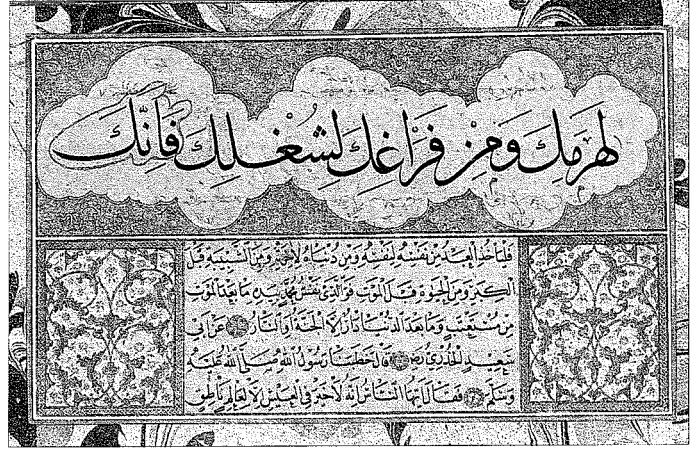 لِهَرَمِكَ وَمِنْ فَرَاغِكَ لِشُغْلِكَ فَإِنَّكَ
فليأخذ العبد من نفسه لنفسه ومن دنياه لآخرته ومن الشبيبة قبل
الكبر ومن الحيوة قبل الموت فوالذي نفس محمد بيده ما بعد الموت
من مستعتب وما بعد الدنيا دار إلا الجنة أو النار عن أبي
سعيد الخدري قال خطبنا رسول الله صلى الله عليه
وسلم فقال أيها الناس إنه لا خير في العيش إلا لعالم ناطق